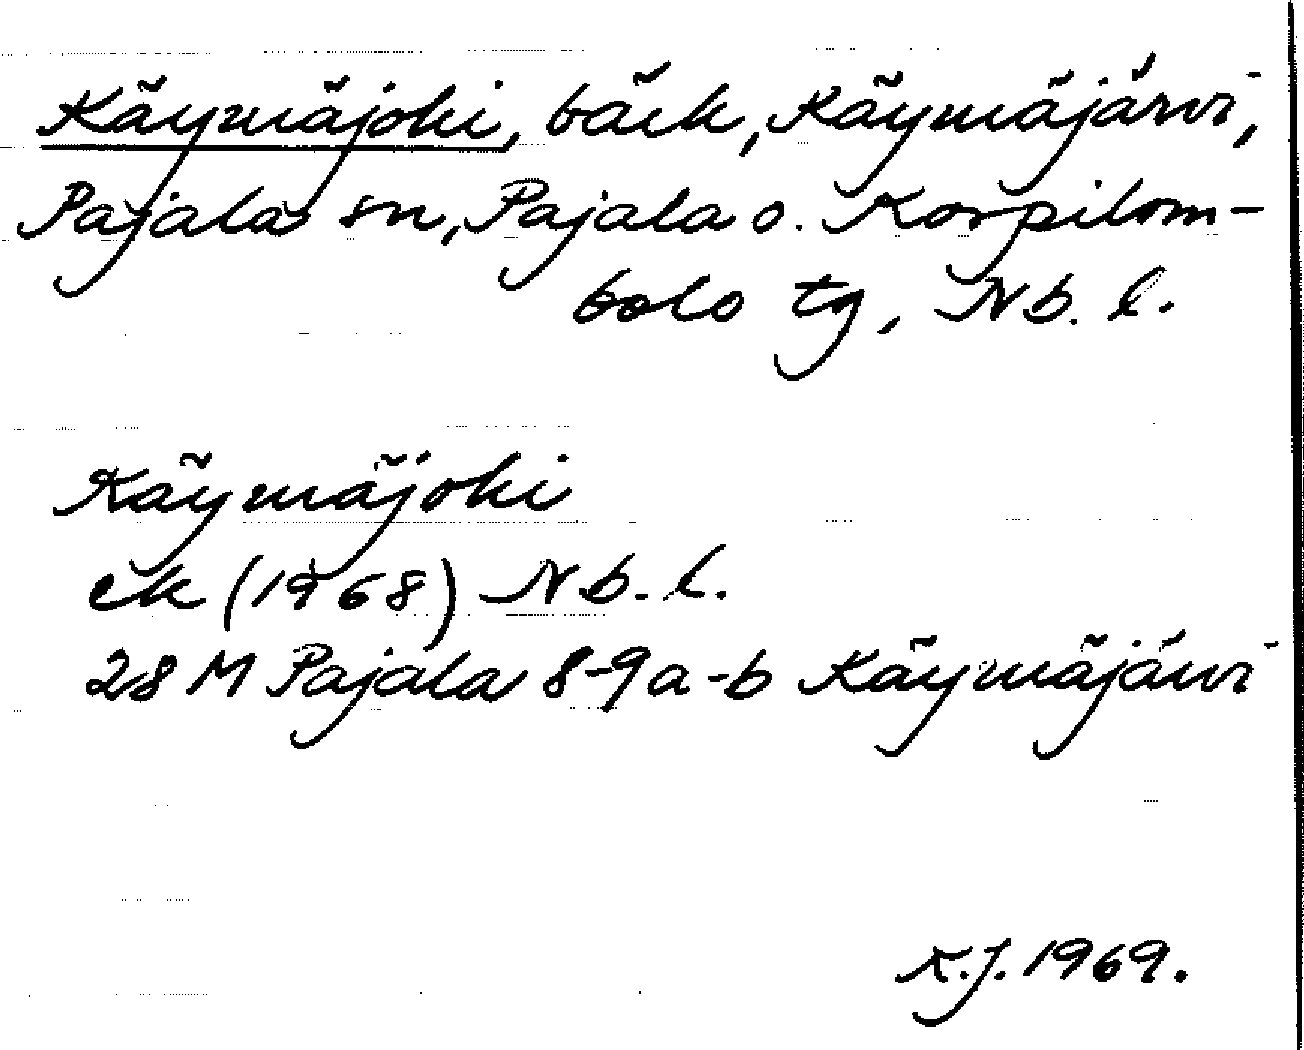 Käymäjoki, bäck, Käymäjärvi,
Pajala sn, Pajala o. Korpilom-
bolo tg, Nb. l.
Käymäjoki
ek (1968) Nb. l.
28 M Pajala 8-9 a-b Käymäjärvi
K.J. 1969.